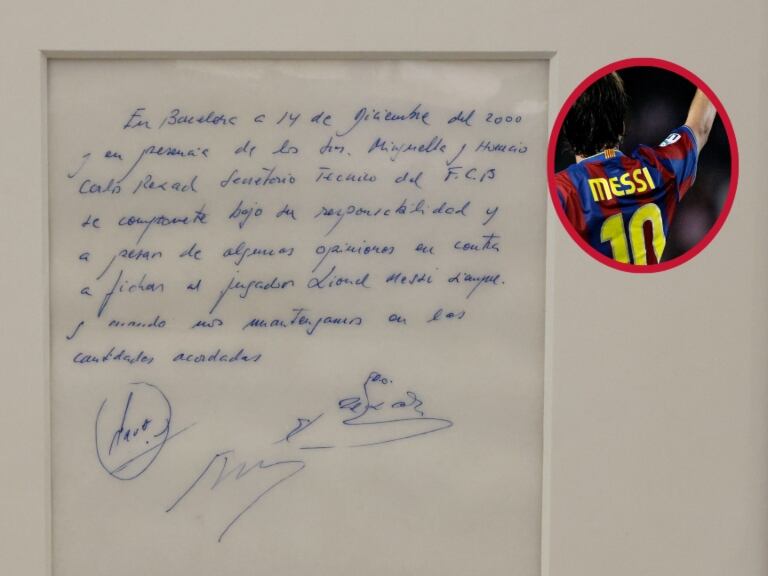 En Barcelona a 14 de Diciembre del 2000
y en presencia de los Srs. Minguella y Horacio
Carlos Rexach Secretario Técnico del F.C.B
se compromete bajo su responsabilidad y
a pesar de algunas opiniones en contra
a fichar al jugador Lionel Messi siempre
y cuando nos mantengamos en las
cantidades acordadas
MESSI
10